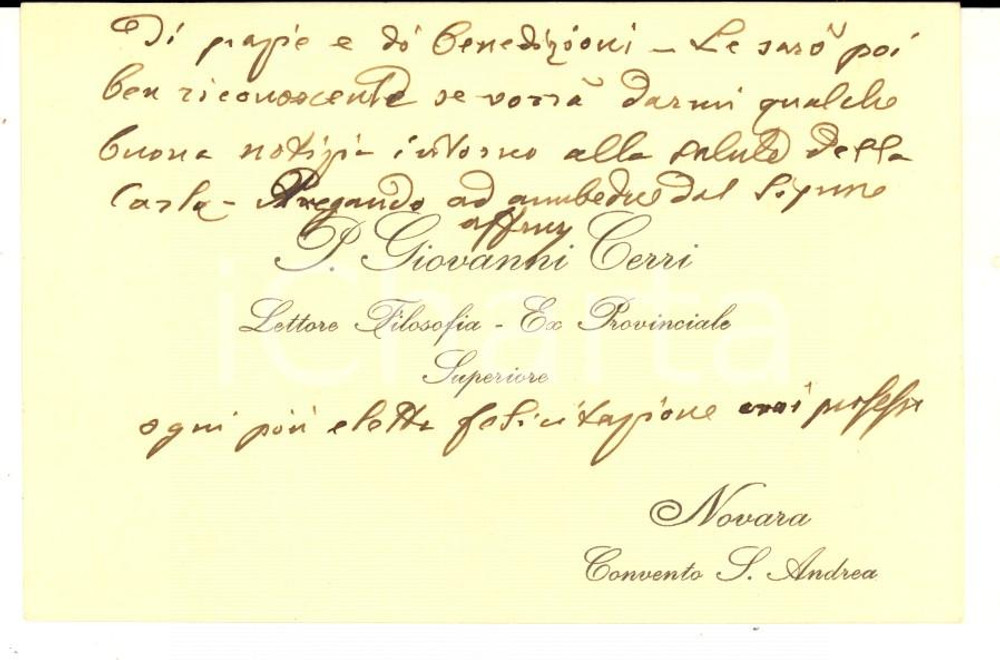 Di grazie e di benedizioni - Le sarò poi
ben riconoscente se vorrà darmi qualche
buona notizia intorno alla salute della
Carla - Pregando ad ambedue dal Signore
P. Giovanni Cerri
Lettore Filosofia - Ex Provinciale
Superiore
ogni più eletta felicitazione mi professo
Novara
Convento S. Andrea
iCharta